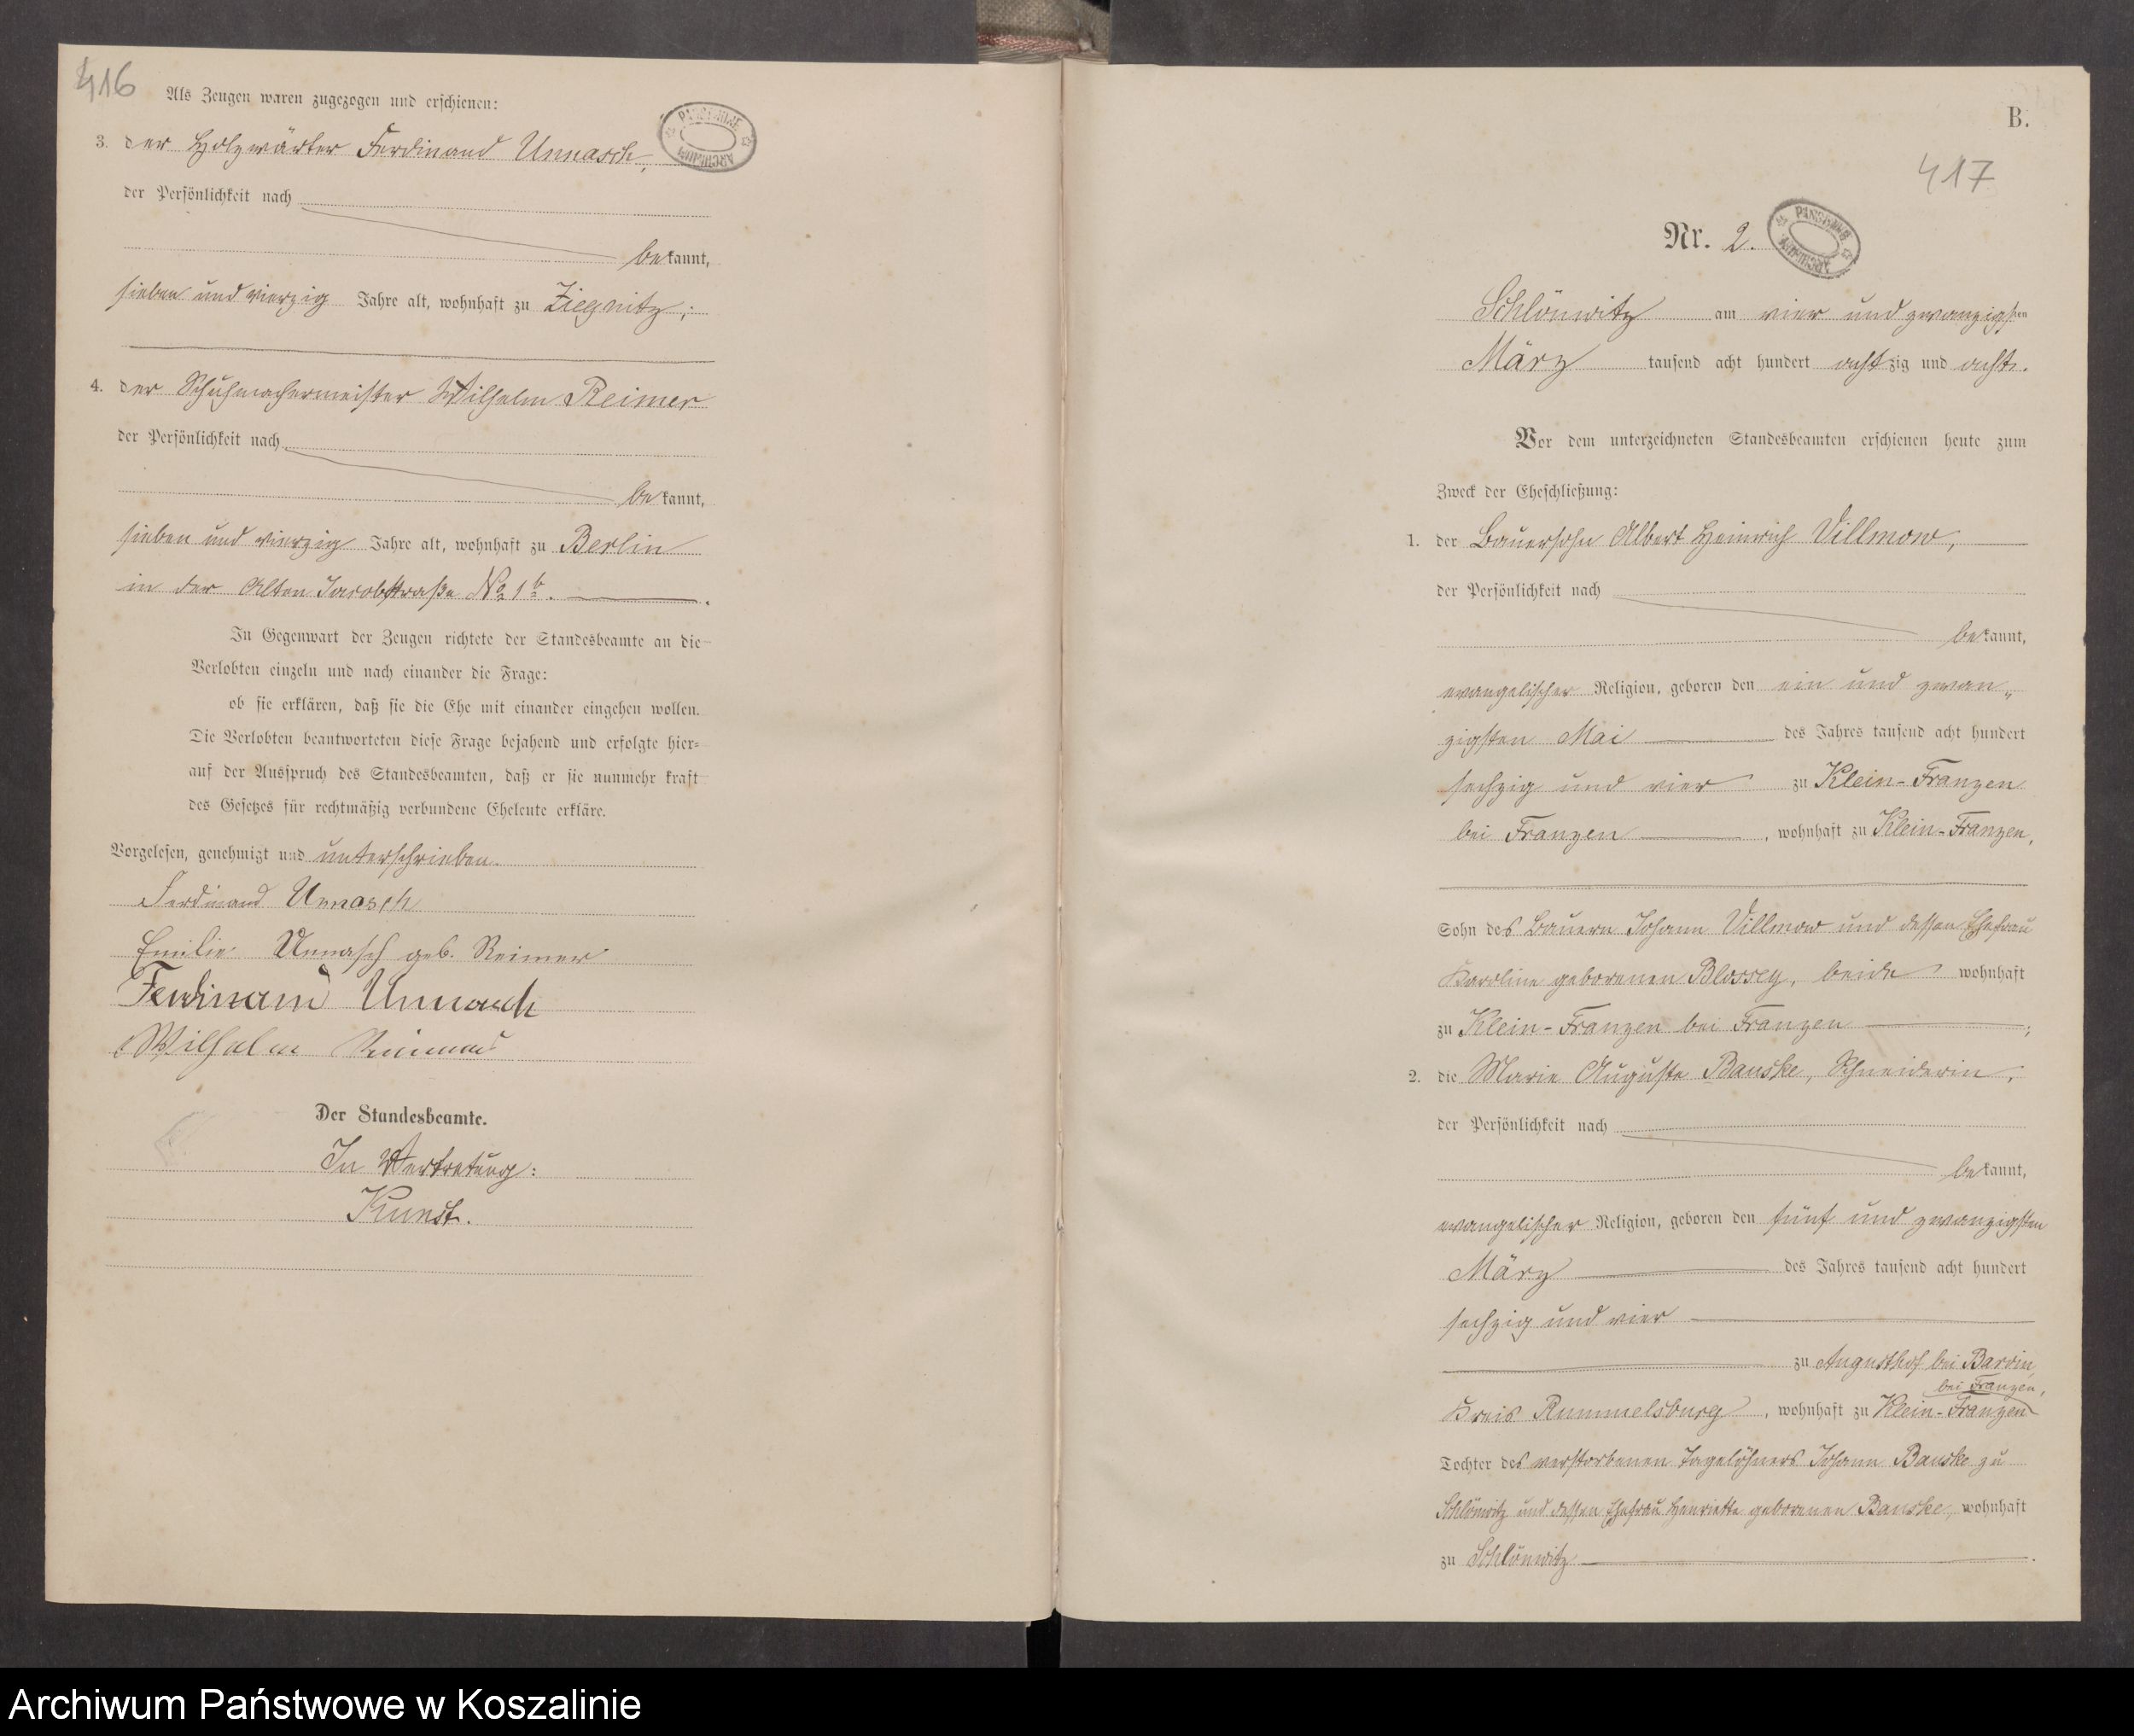 416
Als Zeugen waren zugezogen und erschienen:
3. der Holzwärter Ferdinand Unnasch,
der Persönlichkeit nach
bekannt,
sieben und vierzig Jahre alt, wohnhaft zu Ziegnitz;
4. der Schuhmachermeister Wilhelm Reimer
der Persönlichkeit nach
bekannt,
sieben und vierzig Jahre alt, wohnhaft zu Berlin
in der Alten Jacobstraße No 1b.
In Gegenwart der Zeugen richtete der Standesbeamte an die
Verlobten einzeln und nach einander die Frage:
ob sie erklären, daß sie die Ehe mit einander eingehen wollen.
Die Verlobten beantworteten diese Frage bejahend und erfolgte hier=
auf der Ausspruch des Standesbeamten, daß er sie nunmehr kraft
des Gesetzes für rechtmäßig verbundene Eheleute erkläre.
Vorgelesen, genehmigt und unterschrieben.
Ferdinand Unnasch
Emilie Unnasch geb. Reimer
Ferdinand Unnasch
Wilhelm Reimer
Der Standesbeamte.
In Vertretung:
Kunst.
B.
417
Nr. 2.
Schlönwitz am vier und zwanzigsten
März tausend acht hundert achtzig und acht.
Vor dem unterzeichneten Standesbeamten erschienen heute zum
Zweck der Eheschließung:
1. der Bauersohn Albert Heinrich Villmow,
der Persönlichkeit nach
bekannt,
evangelischer Religion, geboren den ein und zwan„
zigsten Mai des Jahres tausend acht hundert
sechzig und vier zu Klein-Franzen
bei Franzen, wohnhaft zu Klein-Franzen,
Sohn des Bauern Johann Villmow und dessen Ehefrau
Karoline geborenen Blossey, beide wohnhaft
zu Klein-Franzen bei Franzen;
2. die Marie Auguste Banske, Schneiderin,
der Persönlichkeit nach
bekannt,
evangelischer Religion, geboren den fünf und zwanzigsten
März des Jahres tausend acht hundert
sechzig und vier
zu Augusthof bei Barvin,
bei Franzen,
Kreis Rummelsburg, wohnhaft zu Klein-Franzen
Tochter des verstorbenen Tagelöhners Johann Banske zu
Schlönwitz und dessen Ehefrau Henriette geborenen Banske, wohnhaft
zu Schlönwitz.
Archiwum Państwowe w Koszalinie